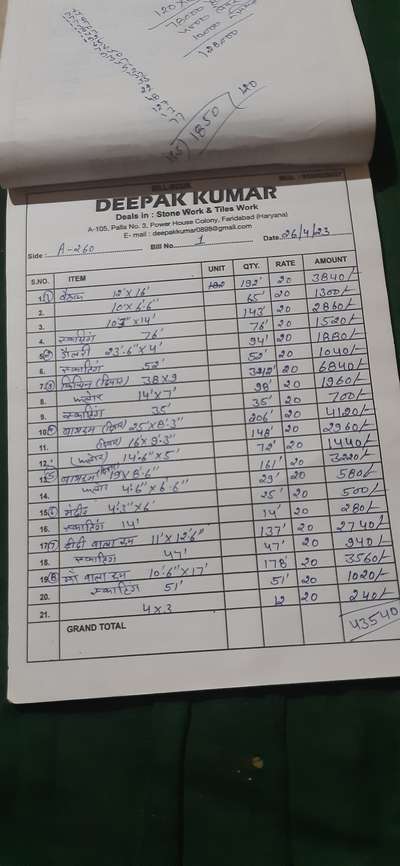 120
1850
128000
DEEPAK KUMAR
Deals in : Stone Work & Tiles Work
A-105, Palla No. 3, Power House Colony, Faridabad (Haryana)
E- mail : deepakkumar0898@gmail.com
Side : A-260 Bill No. 1 Date. 26/4/23
S.NO. ITEM UNIT QTY. RATE AMOUNT
1. (1) बैठक 12'x16' 192' 20 3840/-
2. 10'x6'.6" 65' 20 1300/-
3. 14' 143' 20 2860/-
4. स्काटिंग 76' 76' 20 1520/-
5. (2) गैलरी 23'.6"x4' 94' 20 1880/-
6. स्काटिंग 52' 52' 20 1040/-
7. (3) किचिन (दिवार) 38x9 342' 20 6840/-
8. फ्लोर 14'x7' 98' 20 1960/-
9. स्काटिंग 35' 35' 20 700/-
10. (4) बाथरूम (दिवार) 25'x8'.3" 206' 20 4120/-
11. (दिवार) 18'x8'.3" 148' 20 2960/-
12. (फ्लोर) 14'.6"x5' 72' 20 1440/-
13. (5) बाथरूम (दिवार) 19'x8'.6" 161' 20 3220/-
14. फ्लोर 4'.6"x6'.6" 29' 20 580/-
15. (6) मंदिर 4'.3"x6' 25' 20 500/-
16. स्काटिंग 14' 14' 20 280/-
17. (7) दीदी वाला रूम 11'x12'.6" 137' 20 2740/-
18. स्काटिंग 47' 47' 20 940/-
19. (8) माँ वाला रूम 10'.6"x17' 178' 20 3560/-
20. स्काटिंग 51' 51' 20 1020/-
21. 4x3 12 20 240/-
GRAND TOTAL 43540